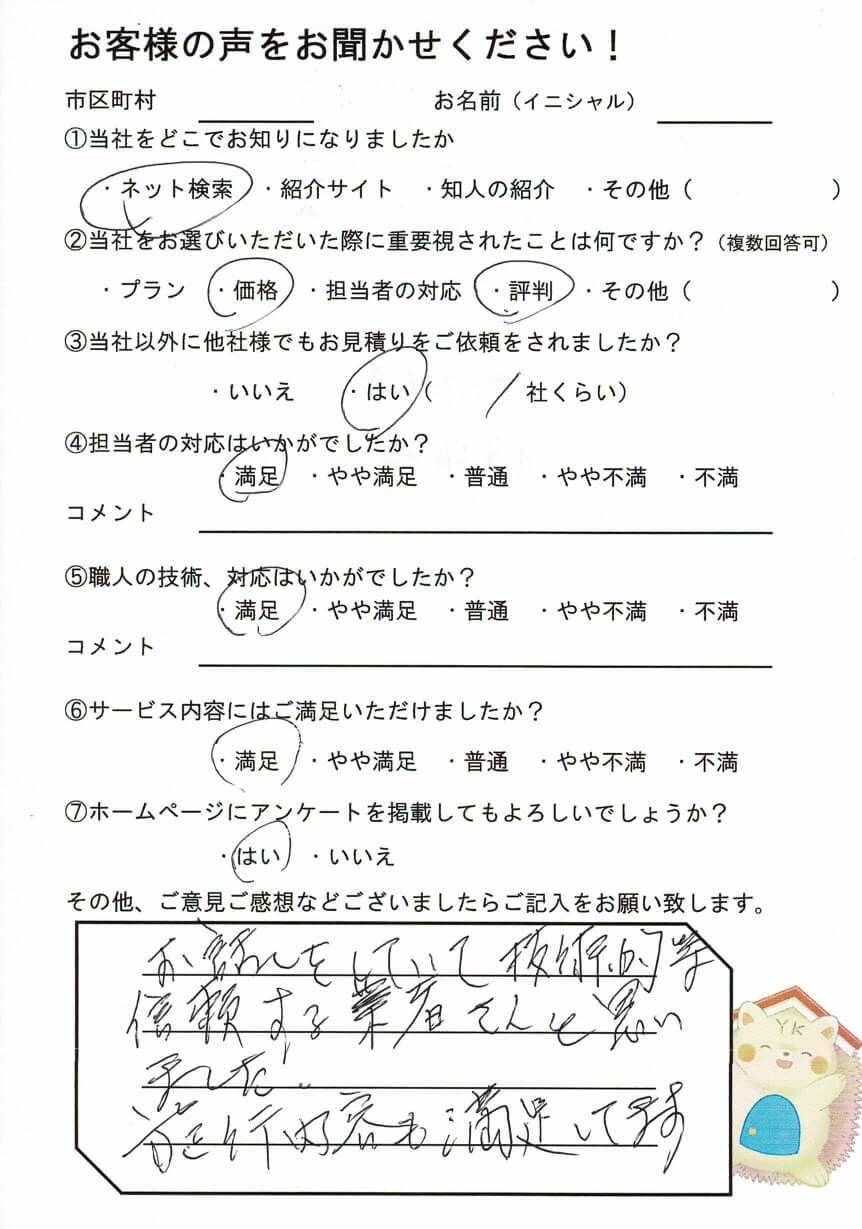 お客様の声をお聞かせください！
市区町村 お名前（イニシャル）
①当社をどこでお知りになりましたか
・ネット検索 ・紹介サイト ・知人の紹介 ・その他（ ）
②当社をお選びいただいた際に重要視されたことは何ですか？（複数回答可）
・プラン ・価格 ・担当者の対応 ・評判 ・その他（ ）
③当社以外に他社様でもお見積りをご依頼をされましたか？
・いいえ ・はい（ / 社くらい）
④担当者の対応はいかがでしたか？
・満足 ・やや満足 ・普通 ・やや不満 ・不満
コメント
⑤職人の技術、対応はいかがでしたか？
・満足 ・やや満足 ・普通 ・やや不満 ・不満
コメント
⑥サービス内容にはご満足いただけましたか？
・満足 ・やや満足 ・普通 ・やや不満 ・不満
⑦ホームページにアンケートを掲載してもよろしいでしょうか？
・はい ・いいえ
その他、ご意見ご感想などございましたらご記入をお願い致します。
お話しをしていて技術的な
信頼する業者さんと思い
ました。
YK
内容も満足してます